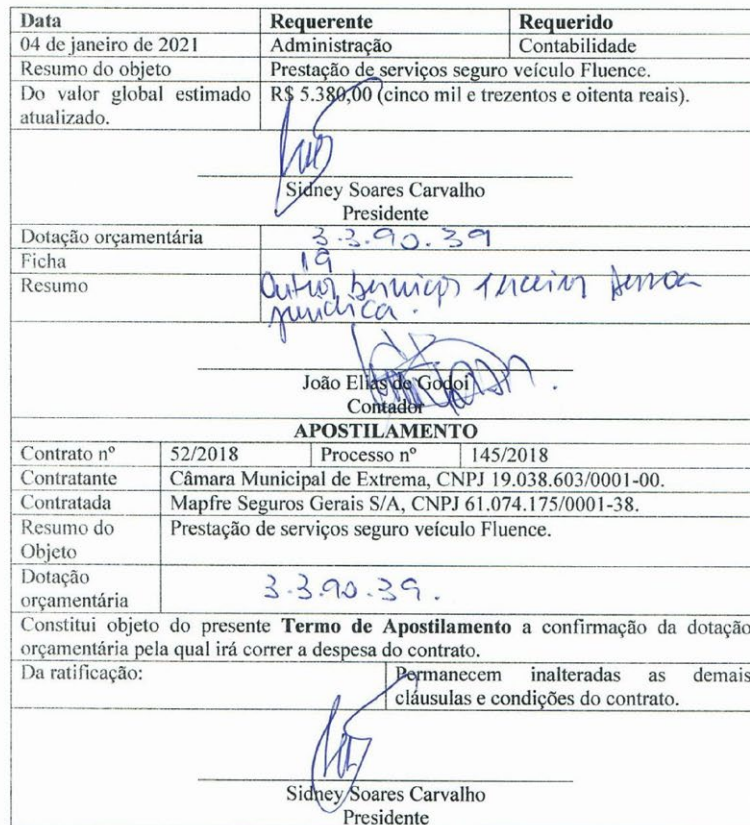 Data Requerente Requerido
04 de janeiro de 2021 Administração Contabilidade
Resumo do objeto Prestação de serviços seguro veículo Fluence.
Do valor global estimado R$ 5.380,00 (cinco mil e trezentos e oitenta reais).
atualizado.
Sidney Soares Carvalho
Presidente
Dotação orçamentária 3.3.90.39
Ficha 19
Resumo Outros serviços terceiros pessoa
jurídica.
João Elias de Godoi
Contador
APOSTILAMENTO
Contrato nº 52/2018 Processo nº 145/2018
Contratante Câmara Municipal de Extrema, CNPJ 19.038.603/0001-00.
Contratada Mapfre Seguros Gerais S/A, CNPJ 61.074.175/0001-38.
Resumo do Prestação de serviços seguro veículo Fluence.
Objeto
Dotação
orçamentária 3.3.90.39.
Constitui objeto do presente Termo de Apostilamento a confirmação da dotação
orçamentária pela qual irá correr a despesa do contrato.
Da ratificação: Permanecem inalteradas as demais
cláusulas e condições do contrato.
Sidney Soares Carvalho
Presidente